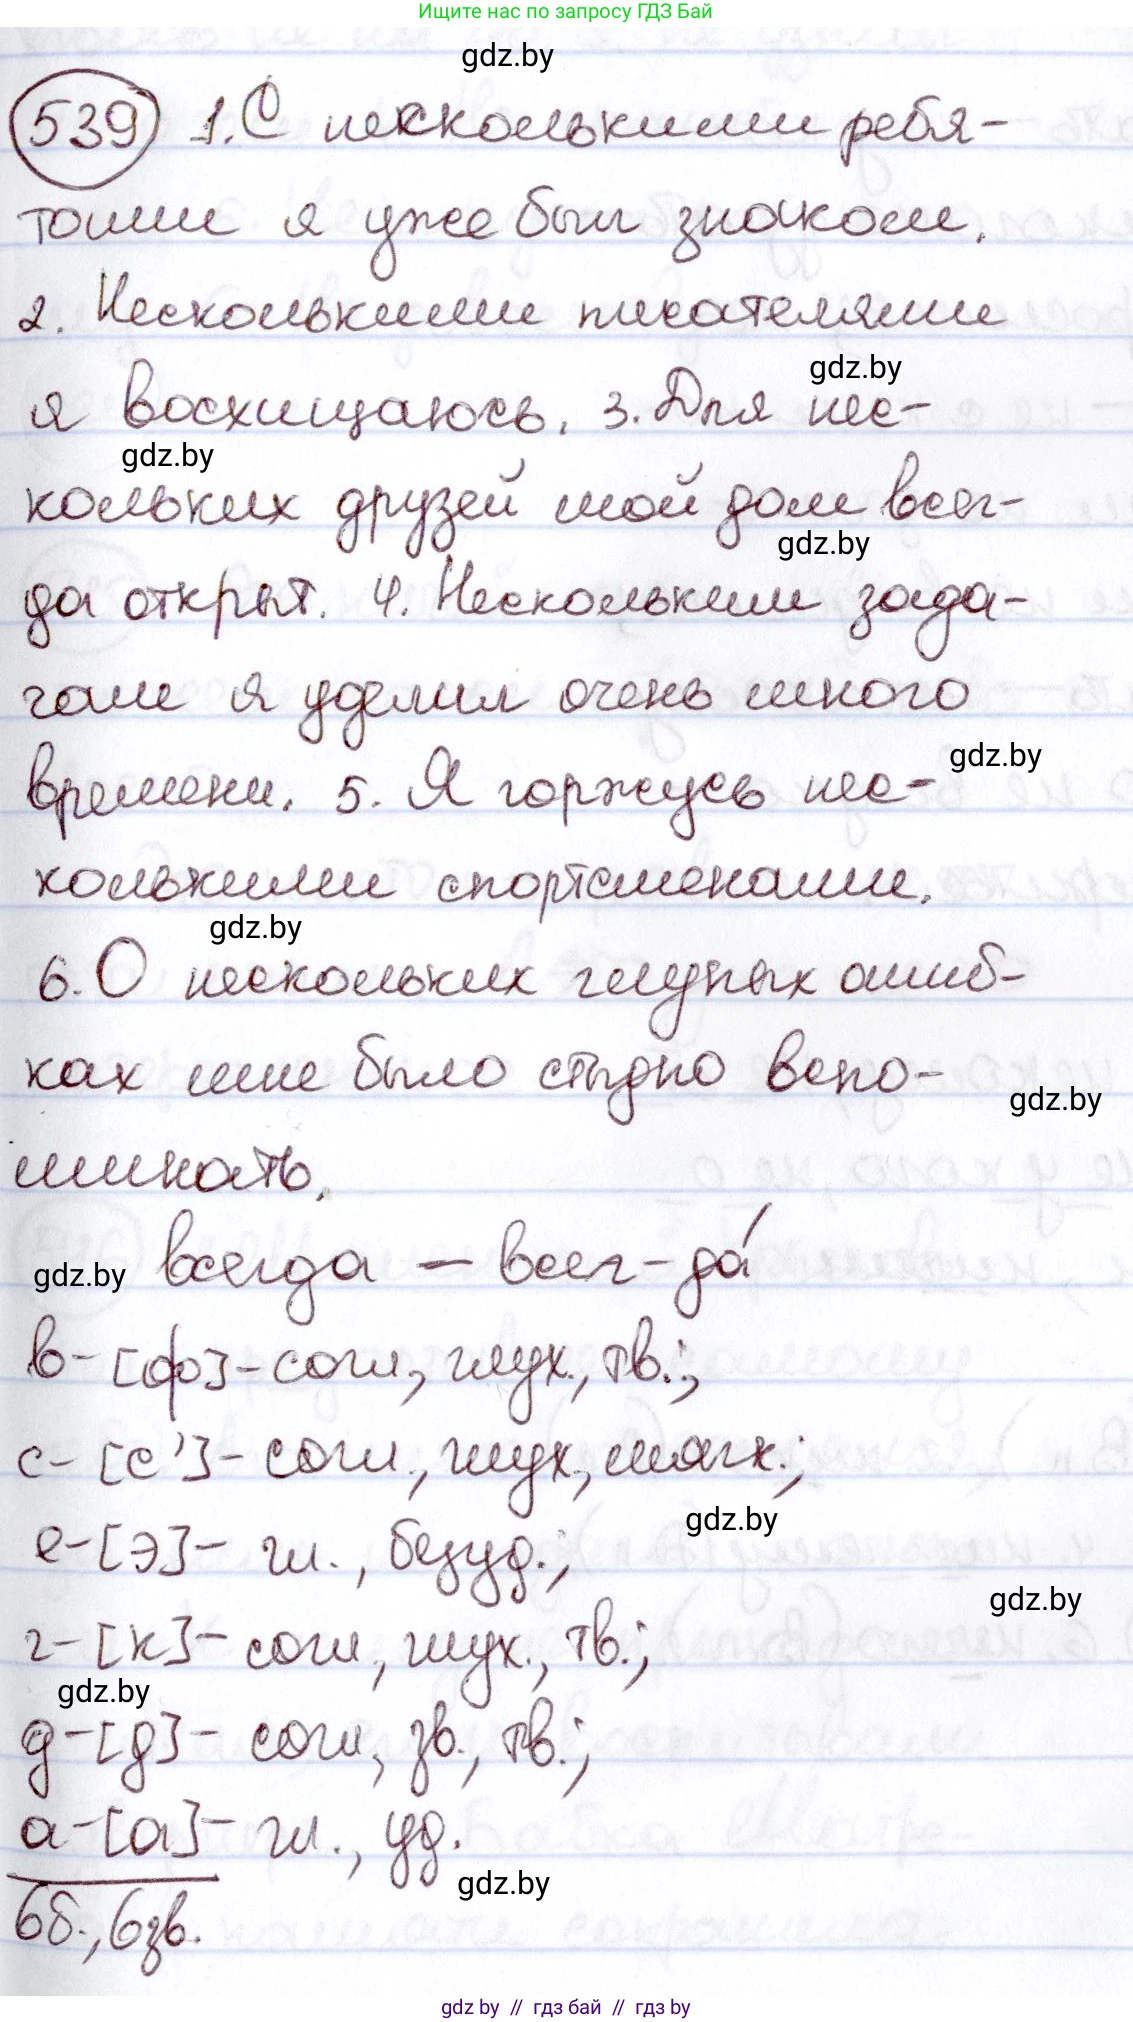 Ищите нас по запросу ГДЗ Бай
gdz.by
539 1. С несколькими ребя-
тами я уже был знаком.
2. Несколькими писателями
gdz.by
я восхищаюсь. 3. Для нес-
gdz.by
кольких друзей мой дом всег-
gdz.by
да открыт. 4. Нескольким зада-
чам я уделил очень много
gdz.by
времени. 5. Я горжусь нес-
колькими спортсменами.
gdz.by
6. О нескольких глупых ошиб-
ках мне было стыдно вспо-
gdz.by
минать.
gdz.by
всегда – всег-да́
в-[ф]-согл., глух., тв.;
с-[с']-согл., глух., мягк.;
gdz.by
е-[э]- гл., безуд.;
gdz.by
г-[к]- согл., глух., тв.;
gdz.by
д-[д]- согл., зв., тв.;
а-[а]- гл., уд.
gdz.by
6б., 6зв.
gdz by // гдз бай // гдз by